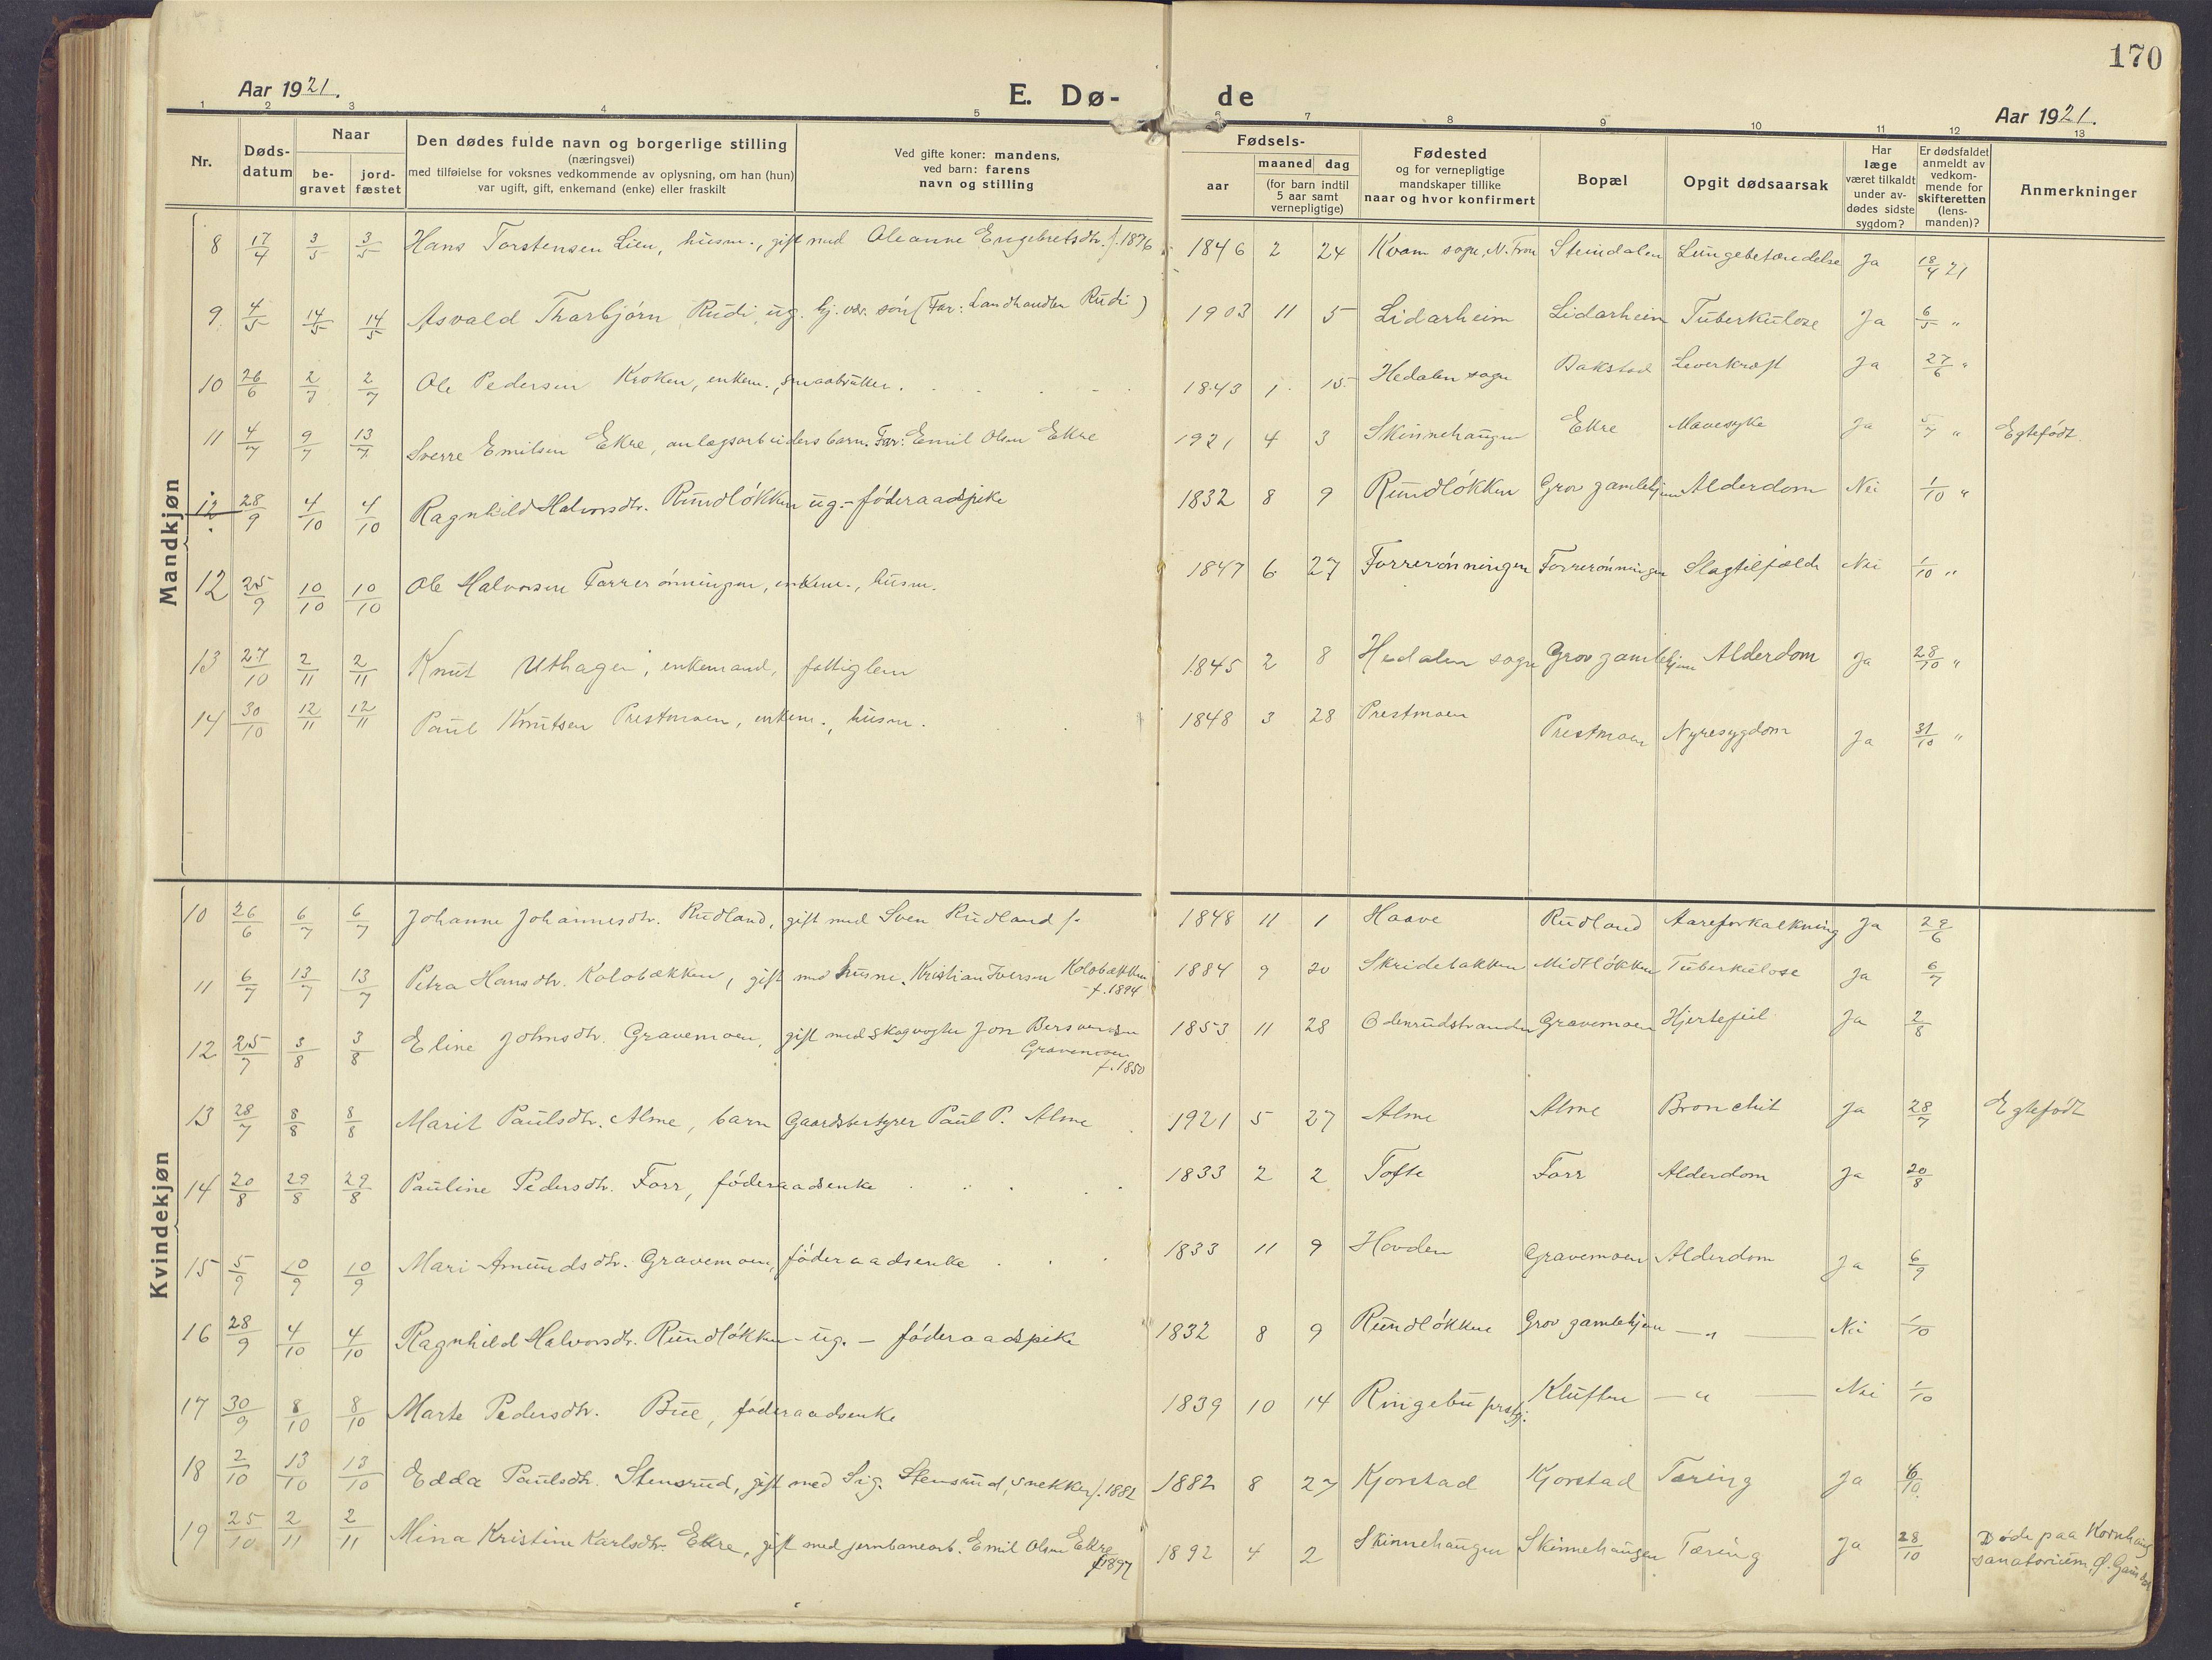 170
Aar 1921.
E. Dø-
de
Aar 1921.
1 2 3 4 5 6 7 8 9 10 11 12 13
Nr.
Døds-
datum
Naar
be-
gravet
jord-
fæstet
Den dødes fulde navn og borgerlige stilling
(næringsvei)
med tilføielse for voksnes vedkommende av oplysning, om han (hun)
var ugift, gift, enkemand (enke) eller fraskilt
Ved gifte koner: mandens,
ved barn: farens
navn og stilling
Fødsels-
aar
maaned dag
(for barn indtil
5 aar samt
vernepligtige)
Fødested
og for vernepligtige
mandskaper tillike
naar og hvor konfirmert
Bopæl
Opgit dødsaarsak
Har
læge
været tilkaldt
under av-
dødes sidste
sygdom?
Er dødsfaldet
anmeldt av
vedkom-
mende for
skifteretten
(lens-
manden)?
Anmerkninger
Mandkjøn
8 17/4 3/5 3/5 Hans Torstensen Lien, husm., gift med Oleanne Engebretsdtr. f. 1876 1846 2 24 Kvam sogn, N. Fron Steindalen Lungebetændelse Ja 18/4 21
9 4/5 14/5 14/5 Asvald Thorbjørn Rudi, ug. hj. vær. søn (Far: Landhandler Rudi) 1903 11 5 Lidarheim Lidarheim Tuberkulose Ja 6/5 "
10 26/6 2/7 2/7 Ole Pedersen Kroken, enkem., smaabruker. 1843 1 15 Hedalen sogn Bakstad Leverkræft Ja 27/6 "
11 4/7 9/7 13/7 Sverre Emilsen Ekre, anlægsarbeiders barn. Far: Emil Olsen Ekre 1921 4 3 Skinnehaugen Ekre Mavesyke Ja 5/7 " Egtefødt.
12 28/9 4/10 4/10 Ragnhild Halvorsdtr. Rundløkken ug. - føderaadspike 1832 8 9 Rundløkken Grov gamlehjem Alderdom Nei 1/10 "
12 25/9 10/10 10/10 Ole Halvorsen Forrerønningen, enkem., husm. 1847 6 27 Forrerønningen Forrerønningen Slagtilfælde Nei 1/10 "
13 27/10 2/11 2/11 Knut Uthagen, enkemand, fattiglem 1845 2 8 Hedalen sogn Grov gamlehjem Alderdom Ja 28/10 "
14 30/10 12/11 12/11 Paul Knutsen Prestmoen, enkem., husm. 1848 3 28 Prestmoen Prestmoen Nyresygdom Ja 31/10 "
Kvindekjøn
10 26/6 6/7 6/7 Johanne Johannesdtr. Rudland, gift med Sven Rudland f. 1848 11 1 Haave Rudland Aareforkalkning Ja 29/6
11 6/7 13/7 13/7 Petra Hansdtr. Kolobækken, gift med husm. Kristian Iversen Kolobækken f. 1894 1884 9 20 Skridebakken Midtløkken Tuberkulose Ja 6/7
12 25/7 3/8 3/8 Eline Johnsdtr. Gravemoen, gift med skogvogter Jon Bersvendsen 1853 11 28 Odenrudstranden Gravemoen Hjertefeil Ja 2/8
Gravemoen
f. 1850
13 28/7 8/8 8/8 Marit Paulsdtr. Alme, barn Gaardsbestyrer Paul P. Alme 1921 5 27 Alme Alme Bronchit Ja 28/7 Egtefødt
14 20/8 29/8 29/8 Pauline Pedersdtr. Forr, føderaadsenke 1833 2 2 Tofte Forr Alderdom Ja 20/8
15 5/9 10/9 10/9 Mari Amundsdtr. Gravemoen, føderaadsenke 1833 11 9 Hovden Gravemoen Alderdom Ja 6/9
16 28/9 4/10 4/10 Ragnhild Halvorsdtr. Rundløkken - ug. - føderaadspike 1832 8 9 Rundløkken Grov gamlehjem — " — Nei 1/10
17 30/9 8/10 8/10 Marte Pedersdtr. Bue, føderaadsenke 1839 10 14 Ringebu prstgj. Kluften — " — Nei 1/10
18 2/10 13/10 13/10 Edda Paulsdtr. Stensrud, gift med Sig. Stensrud, snekker f. 1882 1882 8 27 Kjorstad Kjorstad Tæring Ja 6/10
19 25/10 2/11 2/11 Mina Kristine Karlsdtr. Ekre, gift med jernbanearb. Emil Olsen Ekre f. 1897 1892 4 2 Skinnehaugen Skinnehaugen Tæring Ja 28/10 Døde paa Kornhaug
sanatorium, Ø. Gausdal